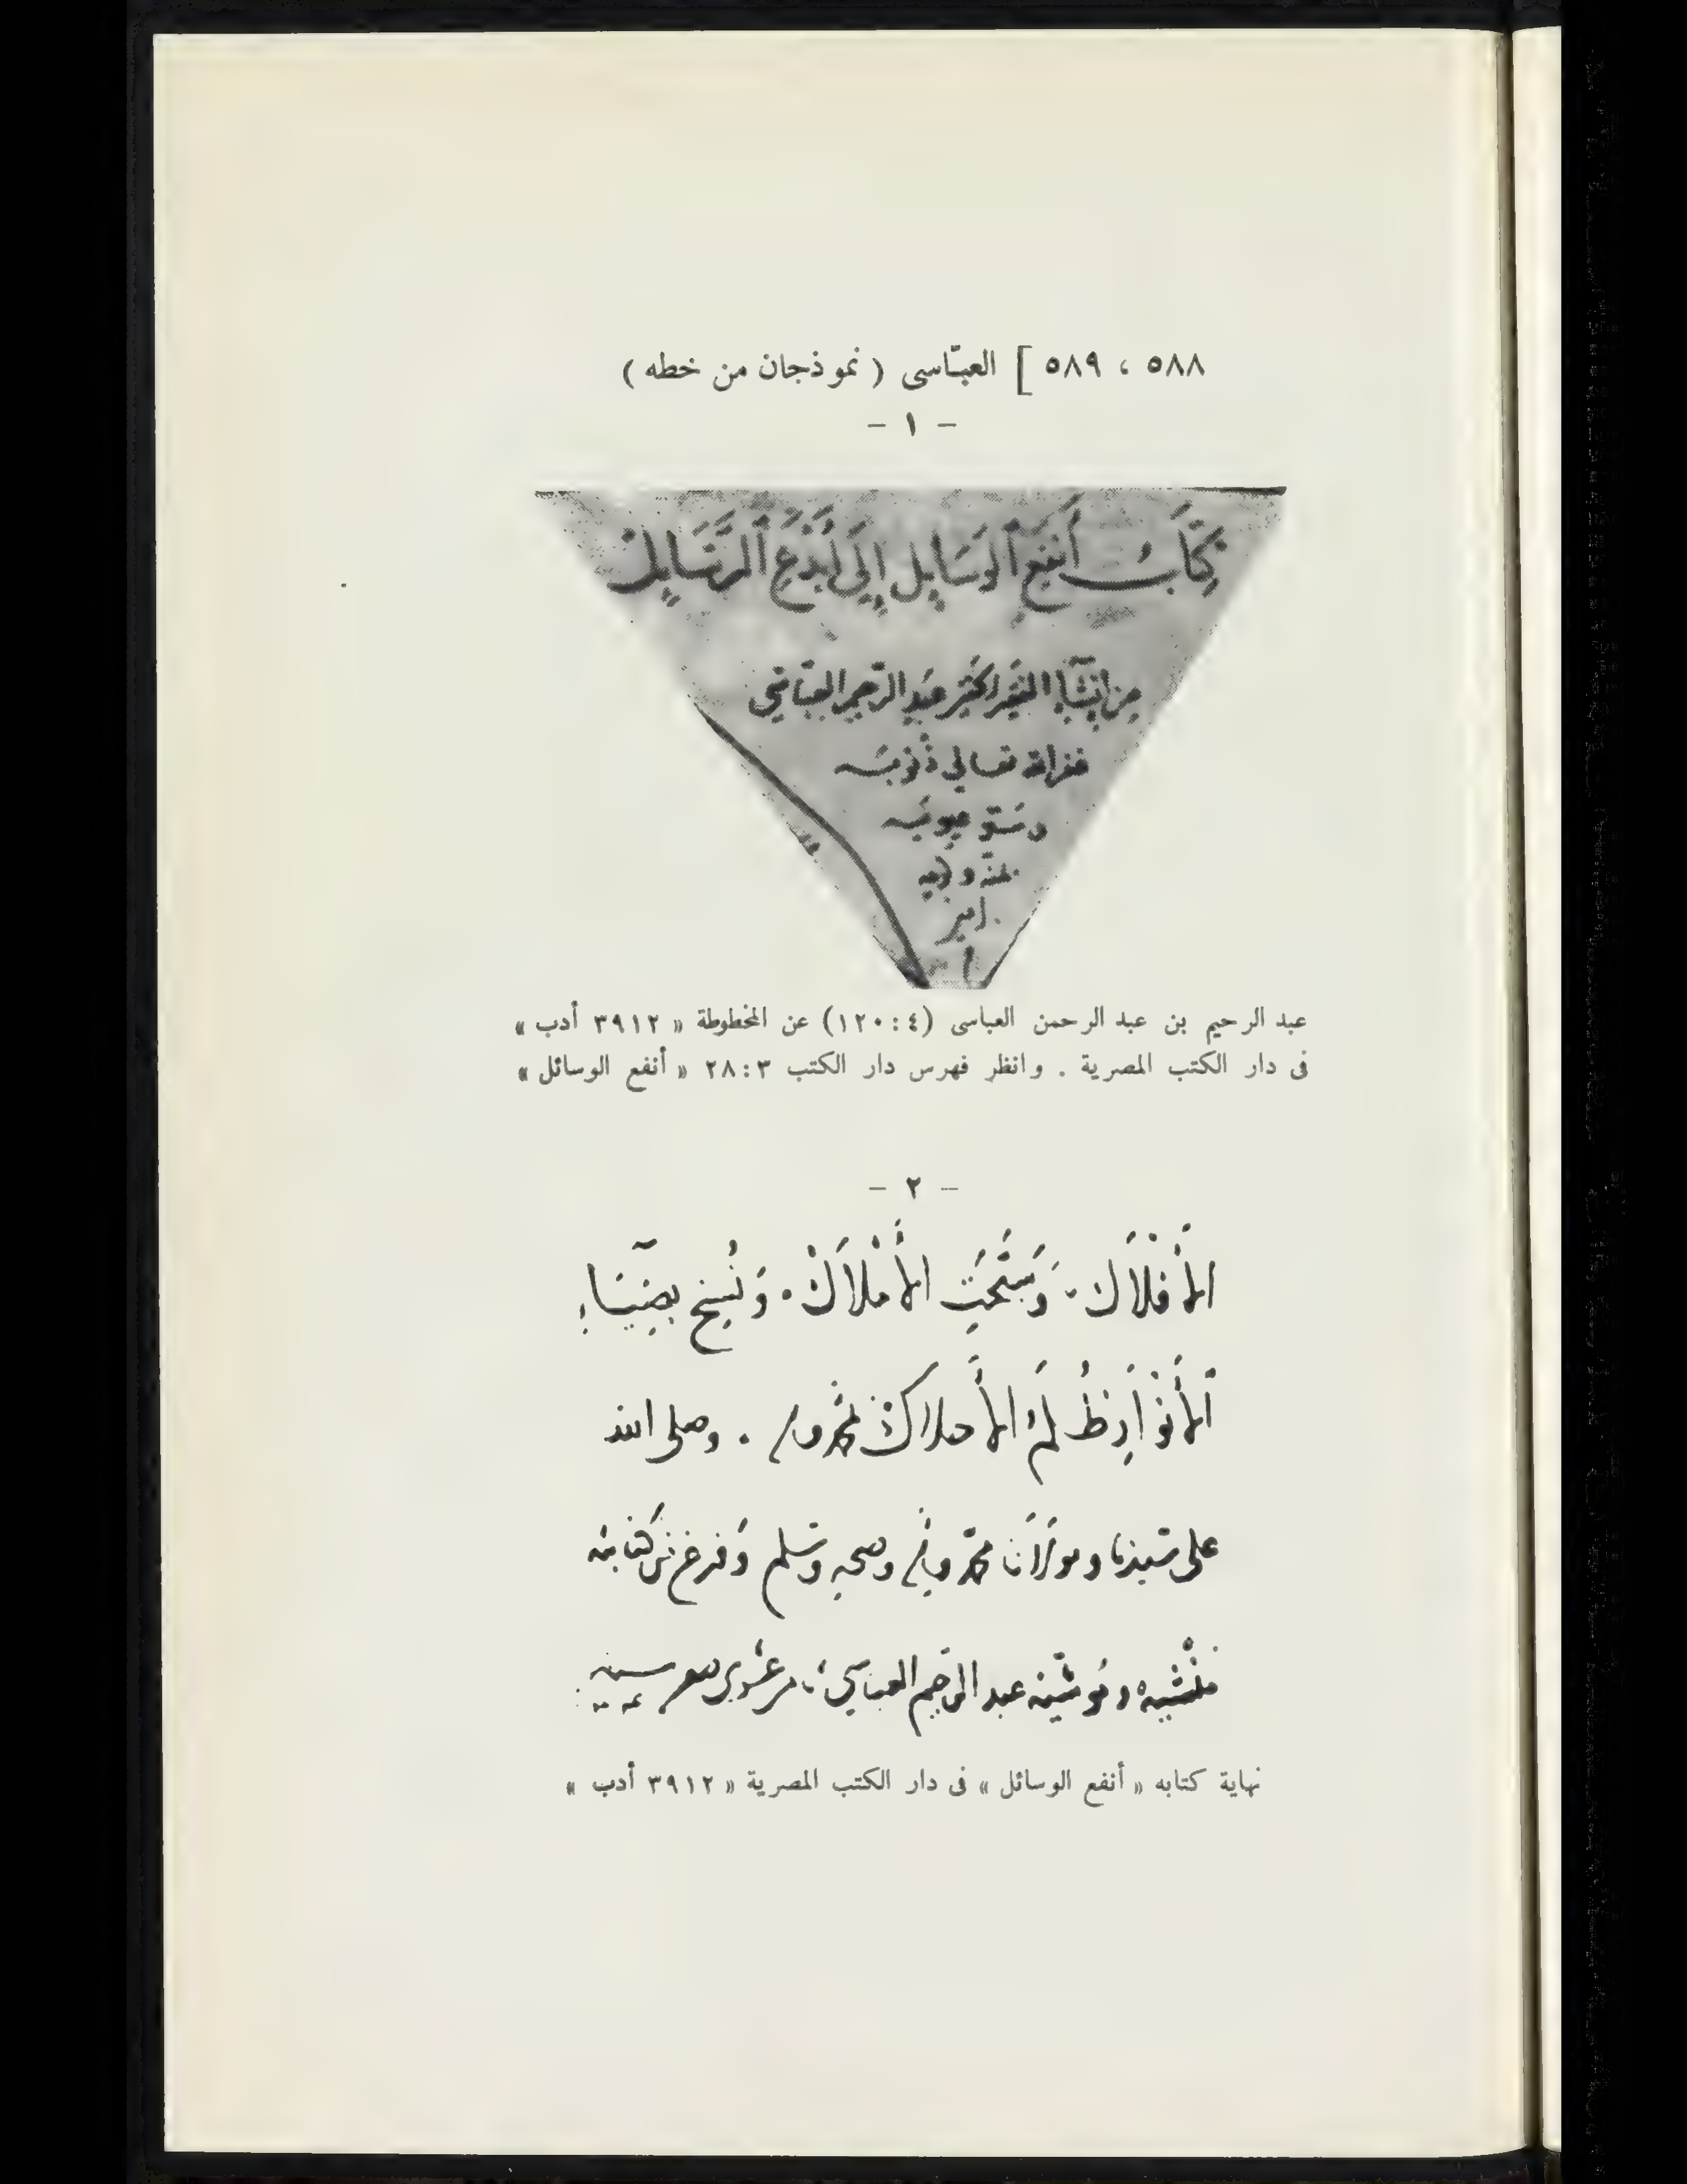 ٥٨٨ ، ٥٨٩ ] العبّاسى ( نموذجان من خطه )
– ١ –
كِتَابُ أَنفَع ٱلوَسَايِل إِلَى أَبْدَع ٱلرَّسَايِل
مِن إنشآء الفقير عبد الرّحيم العبّاسي
غفر الله تعالى ذنوبه
وستر عيوبه
بمنّه
امين
عبد الرحيم بن عبد الرحمن العباسى (٤ : ١٢٠) عن المخطوطة « ٣٩١٢ أدب »
فى دار الكتب المصرية . وانظر فهرس دار الكتب ٣ : ٢٨ « أنفع الوسائل »
– ٢ –
الأَفْلَاك . وَسَبَّحَتِ الأَمْلَاكْ . وَنُسِخ بِضِيَآءِ
ٱلأَنْوَارِ ظُلَمُ الأَحلاك بمحمّد وآله . وصلى الله
على سيّدنا ومولَانا محمّد وآله وصحبه وسلم وَفرغ من كتابته
مُنْشيه وموشّيه عبد الرّحيم العباسي
نهاية كتابه « أنفع الوسائل » فى دار الكتب المصرية « ٣٩١٢ أدب »